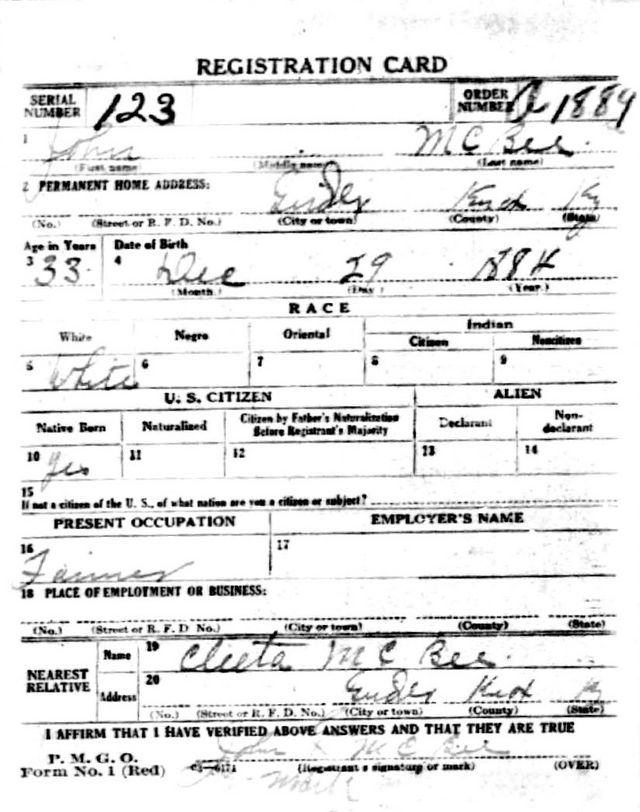 REGISTRATION CARD
SERIAL NUMBER 123 ORDER NUMBER A 1884
1 John Mc Bee
(First name) (Middle name) (Last name)
2 PERMANENT HOME ADDRESS: Knox Ky
(No.) (Street or R. F. D. No.) (City or town) (County) (State)
Age in Years Date of Birth
3 33 4 Dec 29 1884
(Month.) (Day.) (Year.)
RACE
White Negro Oriental Indian
Citizen Noncitizen
5 White 6 7 8 9
U. S. CITIZEN ALIEN
Native Born Naturalized Citizen by Father's Naturalization Before Registrant's Majority Declarant Non-declarant
10 Yes 11 12 13 14
15
If not a citizen of the U. S., of what nation are you a citizen or subject?
PRESENT OCCUPATION EMPLOYER'S NAME
16 Farmer 17
18 PLACE OF EMPLOYMENT OR BUSINESS:
(No.) (Street or R. F. D No.) (City or town) (County) (State)
NEAREST RELATIVE Name 19 Mc Bee
Address 20 Knox Ky
(No.) (Street or R. F. D. No.) (City or town) (County) (State)
I AFFIRM THAT I HAVE VERIFIED ABOVE ANSWERS AND THAT THEY ARE TRUE
John Mc Bee
P. M. G. O.
Form No. 1 (Red) (Registrant's signature or mark) (OVER)